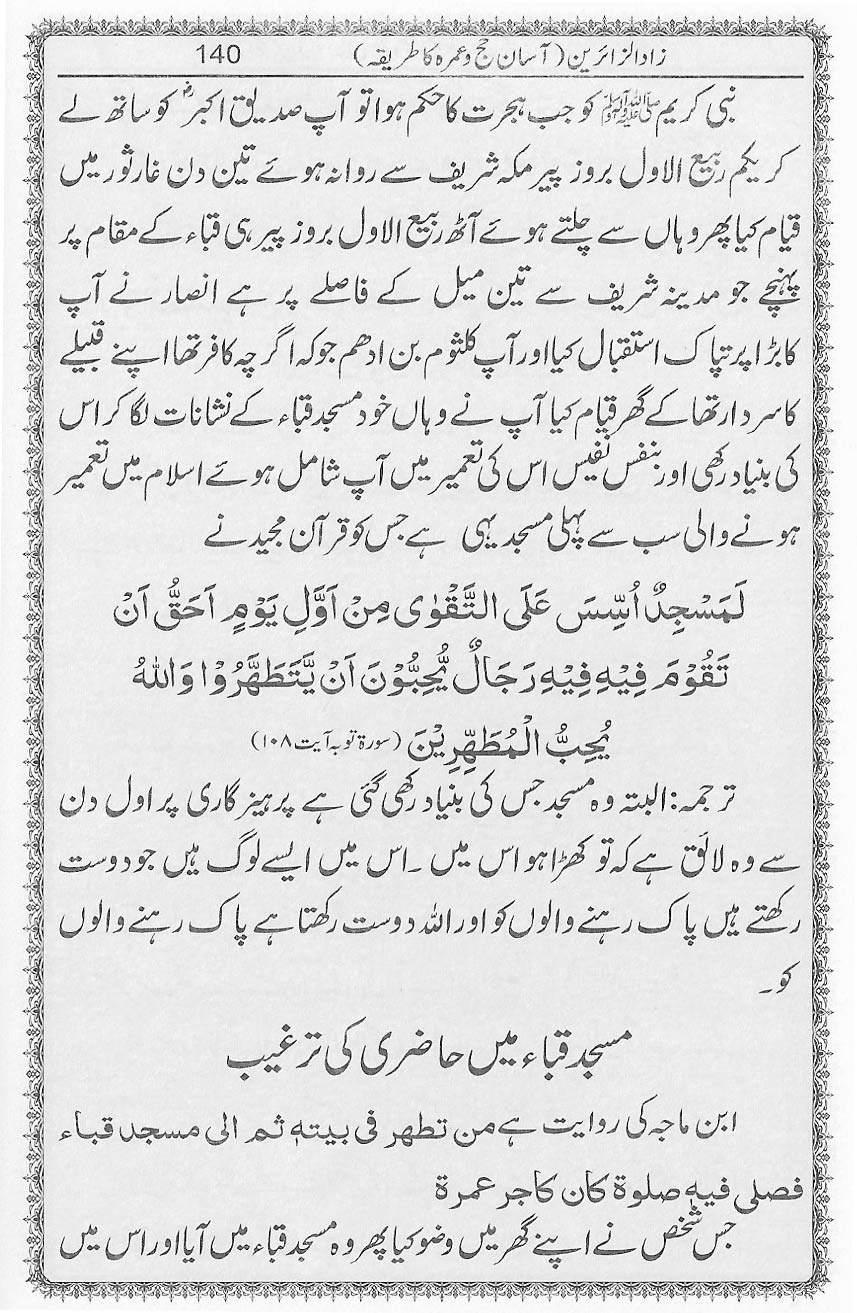 زاد الزائرین (آسان حج و عمرہ کا طریقہ) 140
نبی کریم ﷺ کو جب ہجرت کا حکم ہوا تو آپ صدیق اکبرؓ کو ساتھ لے
کر یکم ربیع الاول بروز پیر مکہ شریف سے روانہ ہوئے تین دن غار ثور میں
قیام کیا پھر وہاں سے چلتے ہوئے آٹھ ربیع الاول بروز پیر ہی قباء کے مقام پر
پہنچے جو مدینہ شریف سے تین میل کے فاصلے پر ہے انصار نے آپ
کا بڑا پر تپاک استقبال کیا اور آپ کلثوم بن ادھم جو کہ اگرچہ کافر تھا اپنے قبیلے
کا سردار تھا کے گھر قیام کیا آپ نے وہاں خود مسجد قباء کے نشانات لگا کر اس
کی بنیاد رکھی اور بنفس نفیس اس کی تعمیر میں آپ شامل ہوئے اسلام میں تعمیر
ہونے والی سب سے پہلی مسجد یہی ہے جس کو قرآن مجید نے
لَمَسْجِدٌ اُسِّسَ عَلَی التَّقْوٰی مِنْ اَوَّلِ یَوْمٍ اَحَقُّ اَنْ
تَقُوْمَ فِیْهِ فِیْهِ رَجَالٌ یُّحِبُّوْنَ اَنْ یَّتَطَهَّرُوْا وَاللّٰهُ
یُحِبُّ الْمُطَهِّرِیْنَ (سورۃ توبہ آیت ۱۰۸)
ترجمہ: البتہ وہ مسجد جس کی بنیاد رکھی گئی ہے پرہیزگاری پر اول دن
سے وہ لائق ہے کہ تو کھڑا ہو اس میں ۔ اس میں ایسے لوگ ہیں جو دوست
رکھتے ہیں پاک رہنے والوں کو اور اللہ دوست رکھتا ہے پاک رہنے والوں
کو ۔
مسجد قباء میں حاضری کی ترغیب
ابن ماجہ کی روایت ہے من تطهر فی بیتهٖ ثم الی مسجد قباء
فصلی فیهٖ صلوة کان کاجر عمرة
جس شخص نے اپنے گھر میں وضو کیا پھر وہ مسجد قباء میں آیا اور اس میں